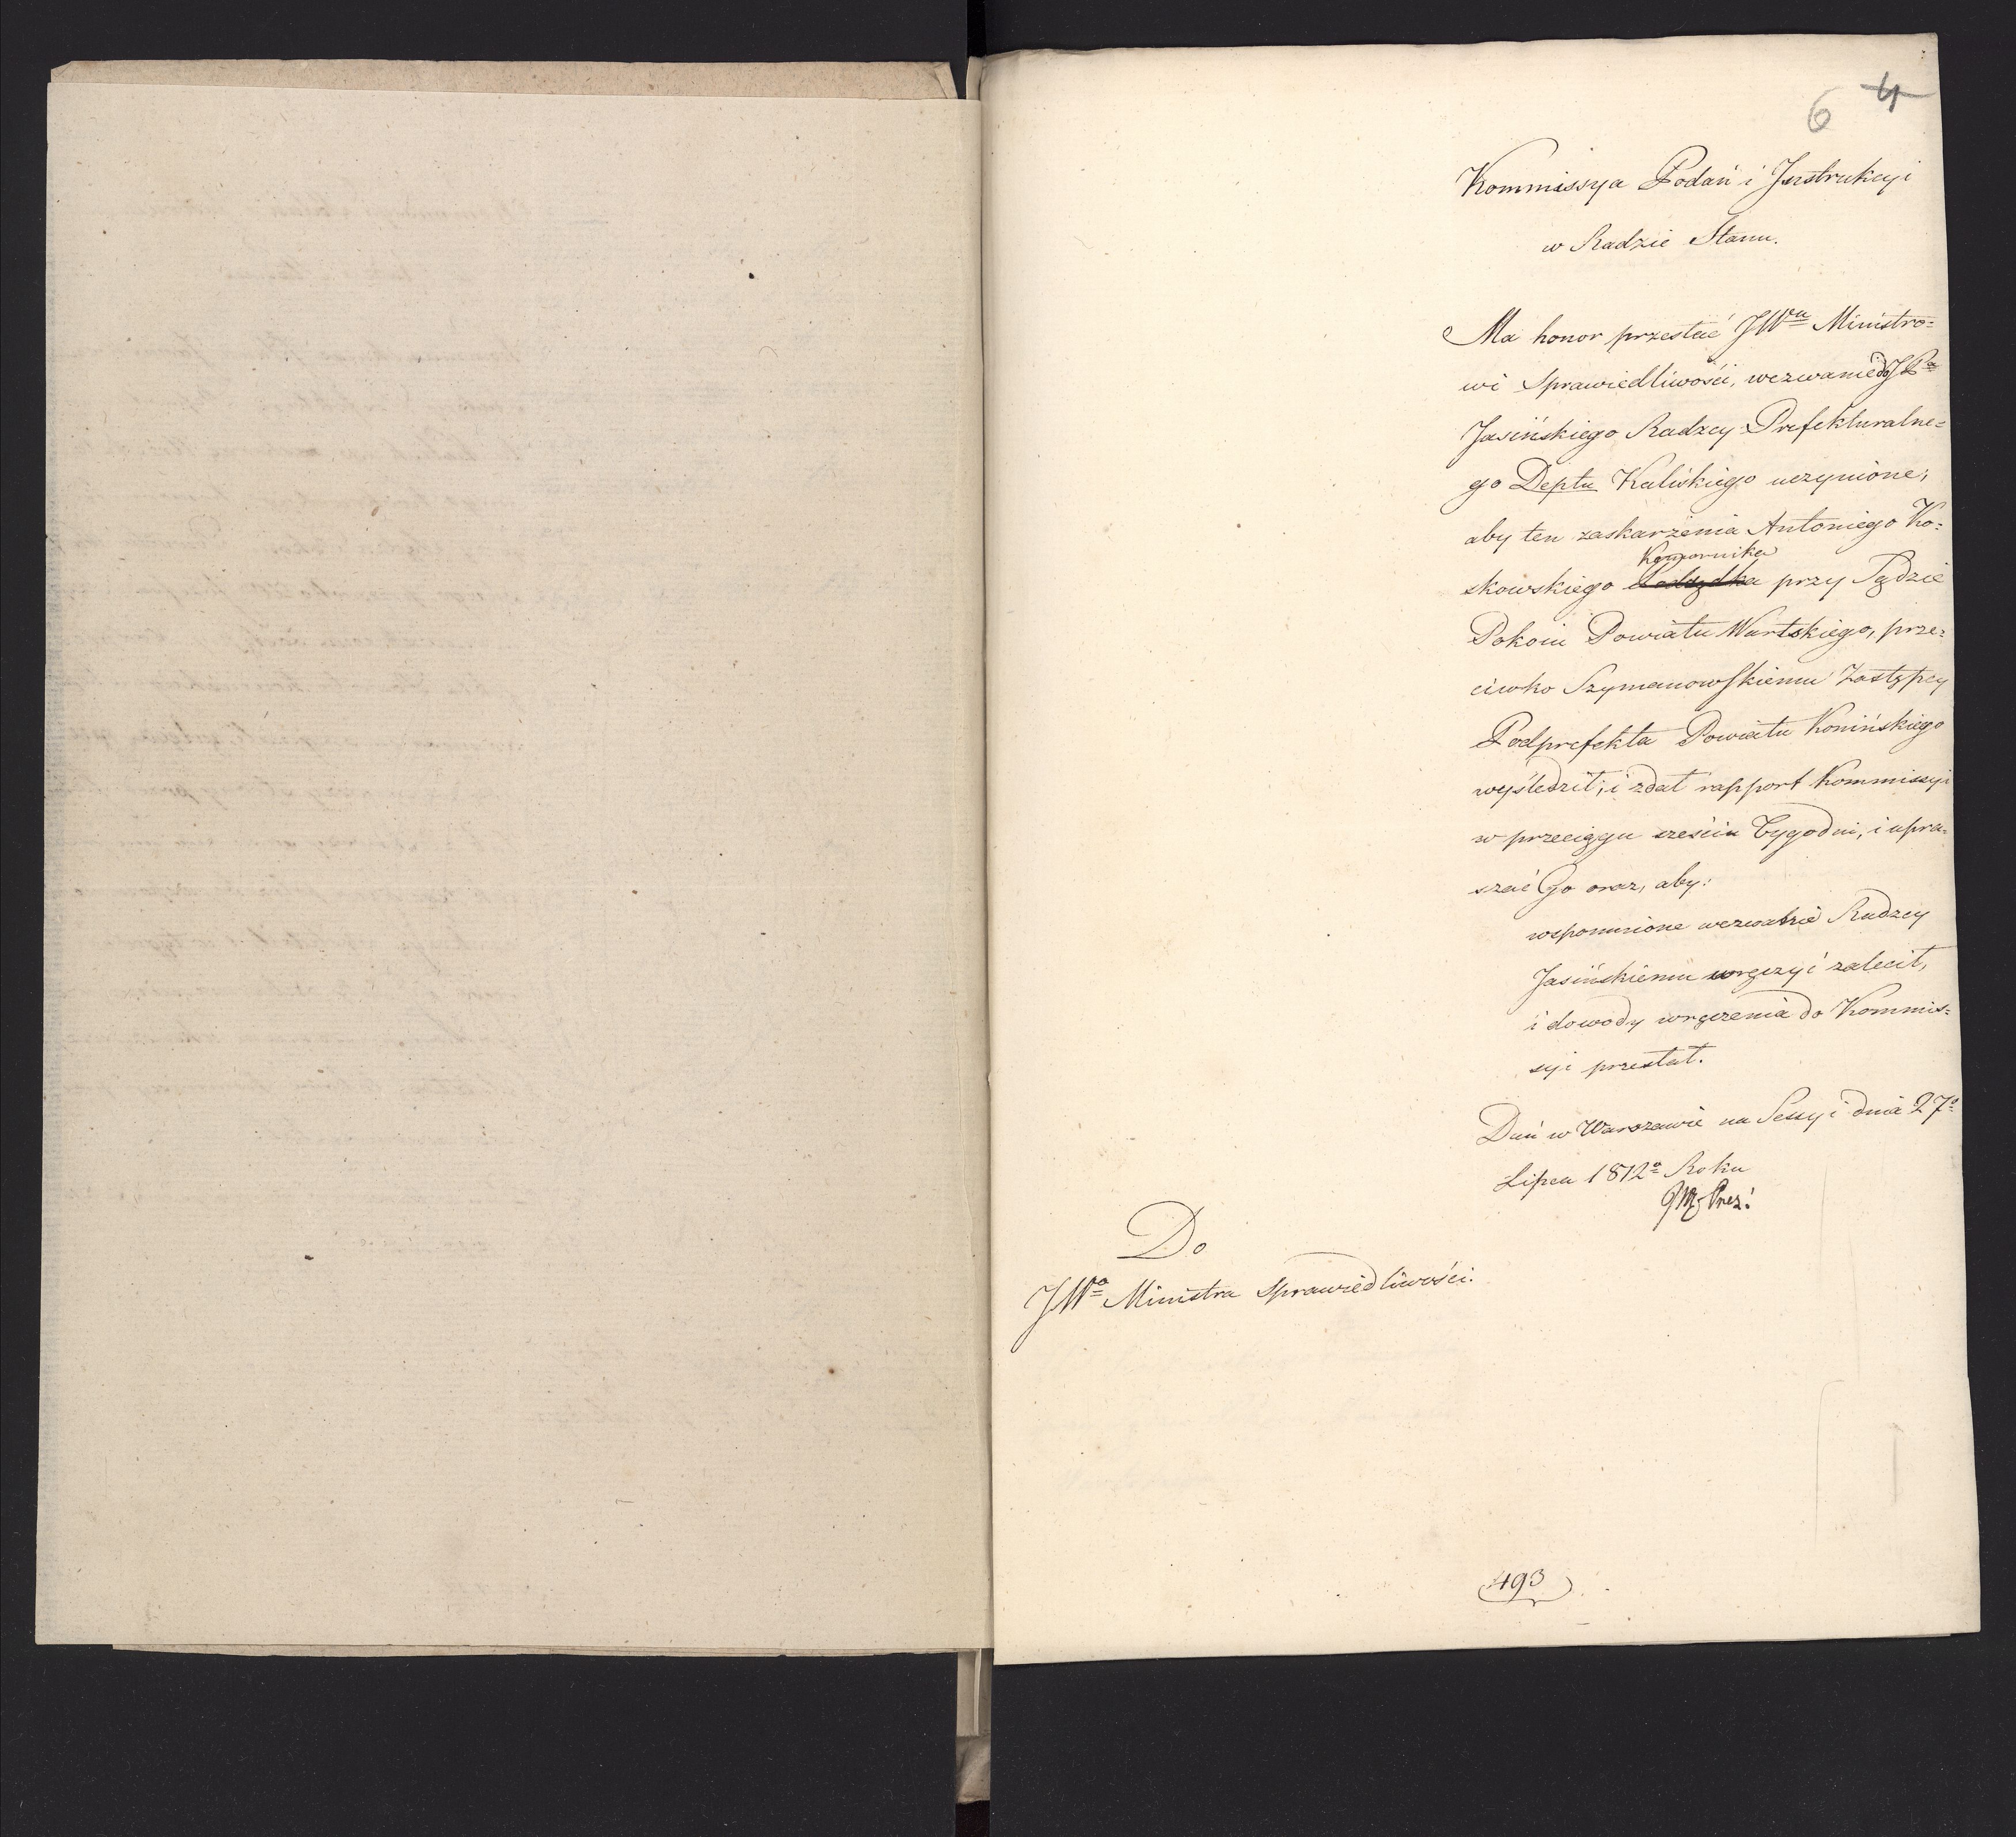 6 4
Kommissya Podań i Jnstrukcyi
w Radzie Stanu.
Ma honor przesłać JWu Ministro=
wi Sprawiedliwości, wezwanie do JPa
Jasińskiego Radzcy Prefekturalne=
go Deptu Kaliskiego uczynione;
aby ten zaskarżenia Antoniego Ko=
Komornika
skowskiego Podsędka przy Sądzie
Pokoiu Powiatu Wartskiego, prze=
ciwko Szymanowskiemu Zastępcy
Podprefekta Powiatu Konińskiego
wyśledził; i zdał rapport Kommissyi
w przeciągu sześciu Tygodni, i upra=
szać Go oraz, aby:
wspomnione wezwanie Radzcy
Jasińskiemu wręczyć zalecił,
i dowody wręczenia do Kommis=
syi przesłał.
Dań w Warszawie na Sessyi dnia 27o
Lipca 1812o Roku
Prez:
Do
JWo Ministra Sprawiedliwości.
493